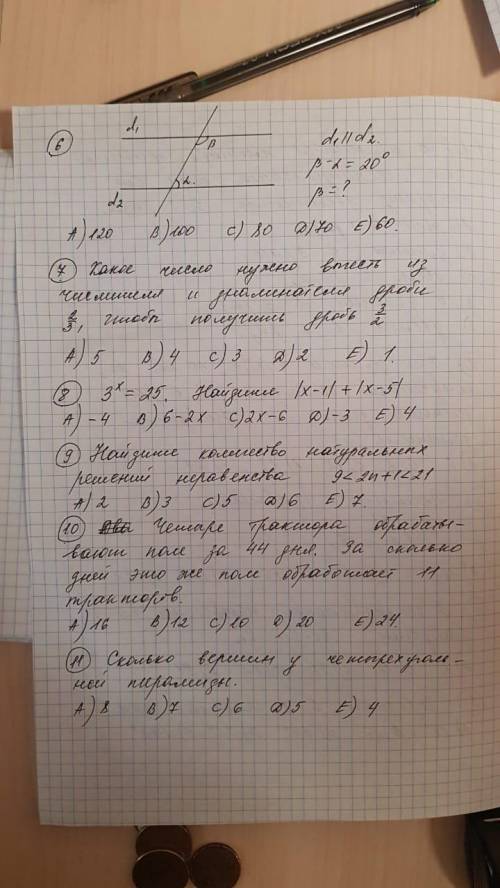 6 d₁ β d₁ || d₂.
α. β - α = 20°
d₂ β = ?
A) 120 B) 100 C) 80 D) 70 E) 60.
7 Какое число нужно вычесть из
числителя и знаменателя дроби
2/3, чтобы получить дробь 3/2
A) 5 B) 4 C) 3 D) 2 E) 1.
8 3ˣ = 25. Найдите |x-1| + |x-5|
A) -4 B) 6-2x C) 2x-6 D) -3 E) 4
9 Найдите количество натуральных
решений неравенства 9<2n+1<21
A) 2 B) 3 C) 5 D) 6 E) 7.
10 Четыре трактора обрабаты-
вают поле за 44 дня. За сколько
дней это же поле обработает 11
тракторов.
A) 16 B) 12 C) 10 D) 20 E) 24.
11 Сколько вершин у четырехуголь-
ной пирамиды.
A) 8 B) 7 C) 6 D) 5 E) 4